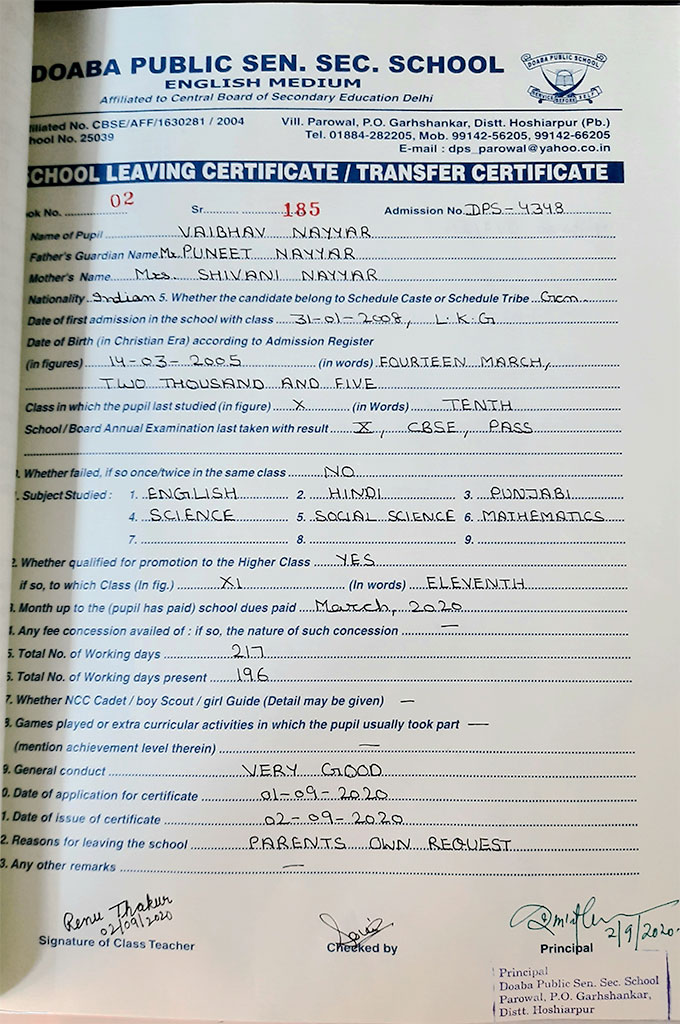 DOABA PUBLIC SEN. SEC. SCHOOL
DOABA PUBLIC SCHOOL
SERVICE BEFORE SELF
ENGLISH MEDIUM
Affiliated to Central Board of Secondary Education Delhi
filiated No. CBSE/AFF/1630281 / 2004 Vill. Parowal, P.O. Garhshankar, Distt. Hoshiarpur (Pb.)
hool No. 25039 Tel. 01884-282205, Mob. 99142-56205, 99142-66205
E-mail : dps_parowal@yahoo.co.in
CHOOL LEAVING CERTIFICATE / TRANSFER CERTIFICATE
ok No. 02 Sr. 185 Admission No. DPS-4348
Name of Pupil VAIBHAV NAYYAR
Father's Guardian Name Mr. PUNEET NAYYAR
Mother's Name Mrs. SHIVANI NAYYAR
Nationality Indian 5. Whether the candidate belong to Schedule Caste or Schedule Tribe Gen.
Date of first admission in the school with class 31-01-2008, L.K.G
Date of Birth (in Christian Era) according to Admission Register
(in figures) 14-03-2005 (in words) FOURTEEN MARCH,
TWO THOUSAND AND FIVE
Class in which the pupil last studied (in figure) X (in Words) TENTH
School / Board Annual Examination last taken with result X, CBSE, PASS
. Whether failed, if so once/twice in the same class NO
. Subject Studied : 1. ENGLISH 2. HINDI 3. PUNJABI
4. SCIENCE 5. SOCIAL SCIENCE 6. MATHEMATICS
7. 8. 9.
2. Whether qualified for promotion to the Higher Class YES
if so, to which Class (In fig.) XI (In words) ELEVENTH
3. Month up to the (pupil has paid) school dues paid March, 2020
4. Any fee concession availed of : if so, the nature of such concession —
5. Total No. of Working days 217
6. Total No. of Working days present 196
7. Whether NCC Cadet / boy Scout / girl Guide (Detail may be given) —
8. Games played or extra curricular activities in which the pupil usually took part —
(mention achievement level therein) —
9. General conduct VERY GOOD
0. Date of application for certificate 01-09-2020
1. Date of issue of certificate 02-09-2020
2. Reasons for leaving the school PARENTS OWN REQUEST
3. Any other remarks —
Renu Thakur
02/09/2020 2/9/2020
Signature of Class Teacher Checked by Principal
Principal
Doaba Public Sen. Sec. School
Parowal, P.O. Garhshankar,
Distt. Hoshiarpur